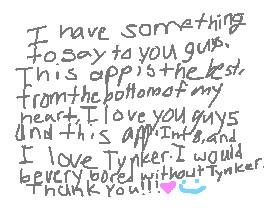 I have something
to say to you guys.
This app is the best,
from the bottom of my
heart, I love you guys
and this app. Int 8, and
I love Tynker. I would
be very bored without Tynker.
Thank you!!!